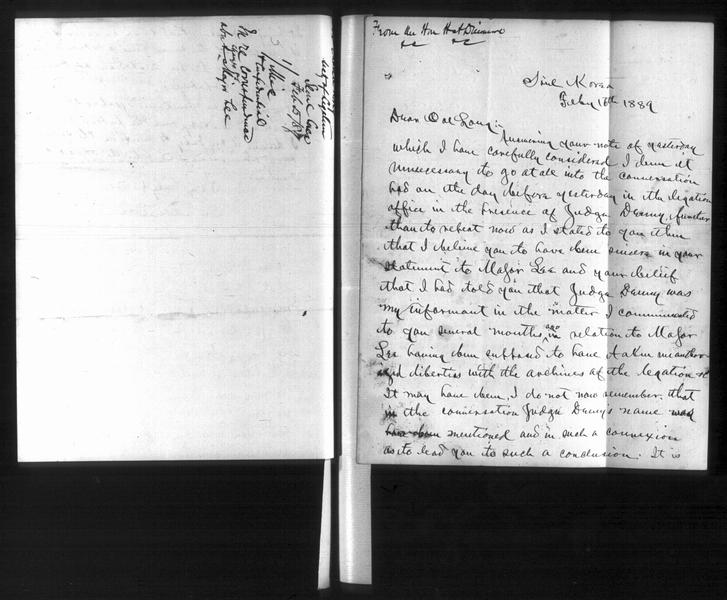 From the Hon H A Dinsmore
Söul Korea
Feby 16th 1889
Dear Col Long:
Answering your note of yesterday
which I have carefully considered I deem it
unnecessary to go at all into the conversation
had on the day before yesterday in the legation
office in the presence of Judge Denny, further
than to repeat now as I stated to you then
that I believe you to have been sincere in your
statement to Major Lee and your belief
that I had told you that Judge Denny was
my informant in the matter I communicated
to you several months ago in relation to Major
Lee having been supposed to have taken unauthor-
ized liberties with the archives of the legation &c
It may have been, I do not now remember, that
in the conversation Judge Denny's name was
have been mentioned and in such a connexion
as to lead you to such a conclusion. It is
Confidential
In re correspondence
about Major Lee